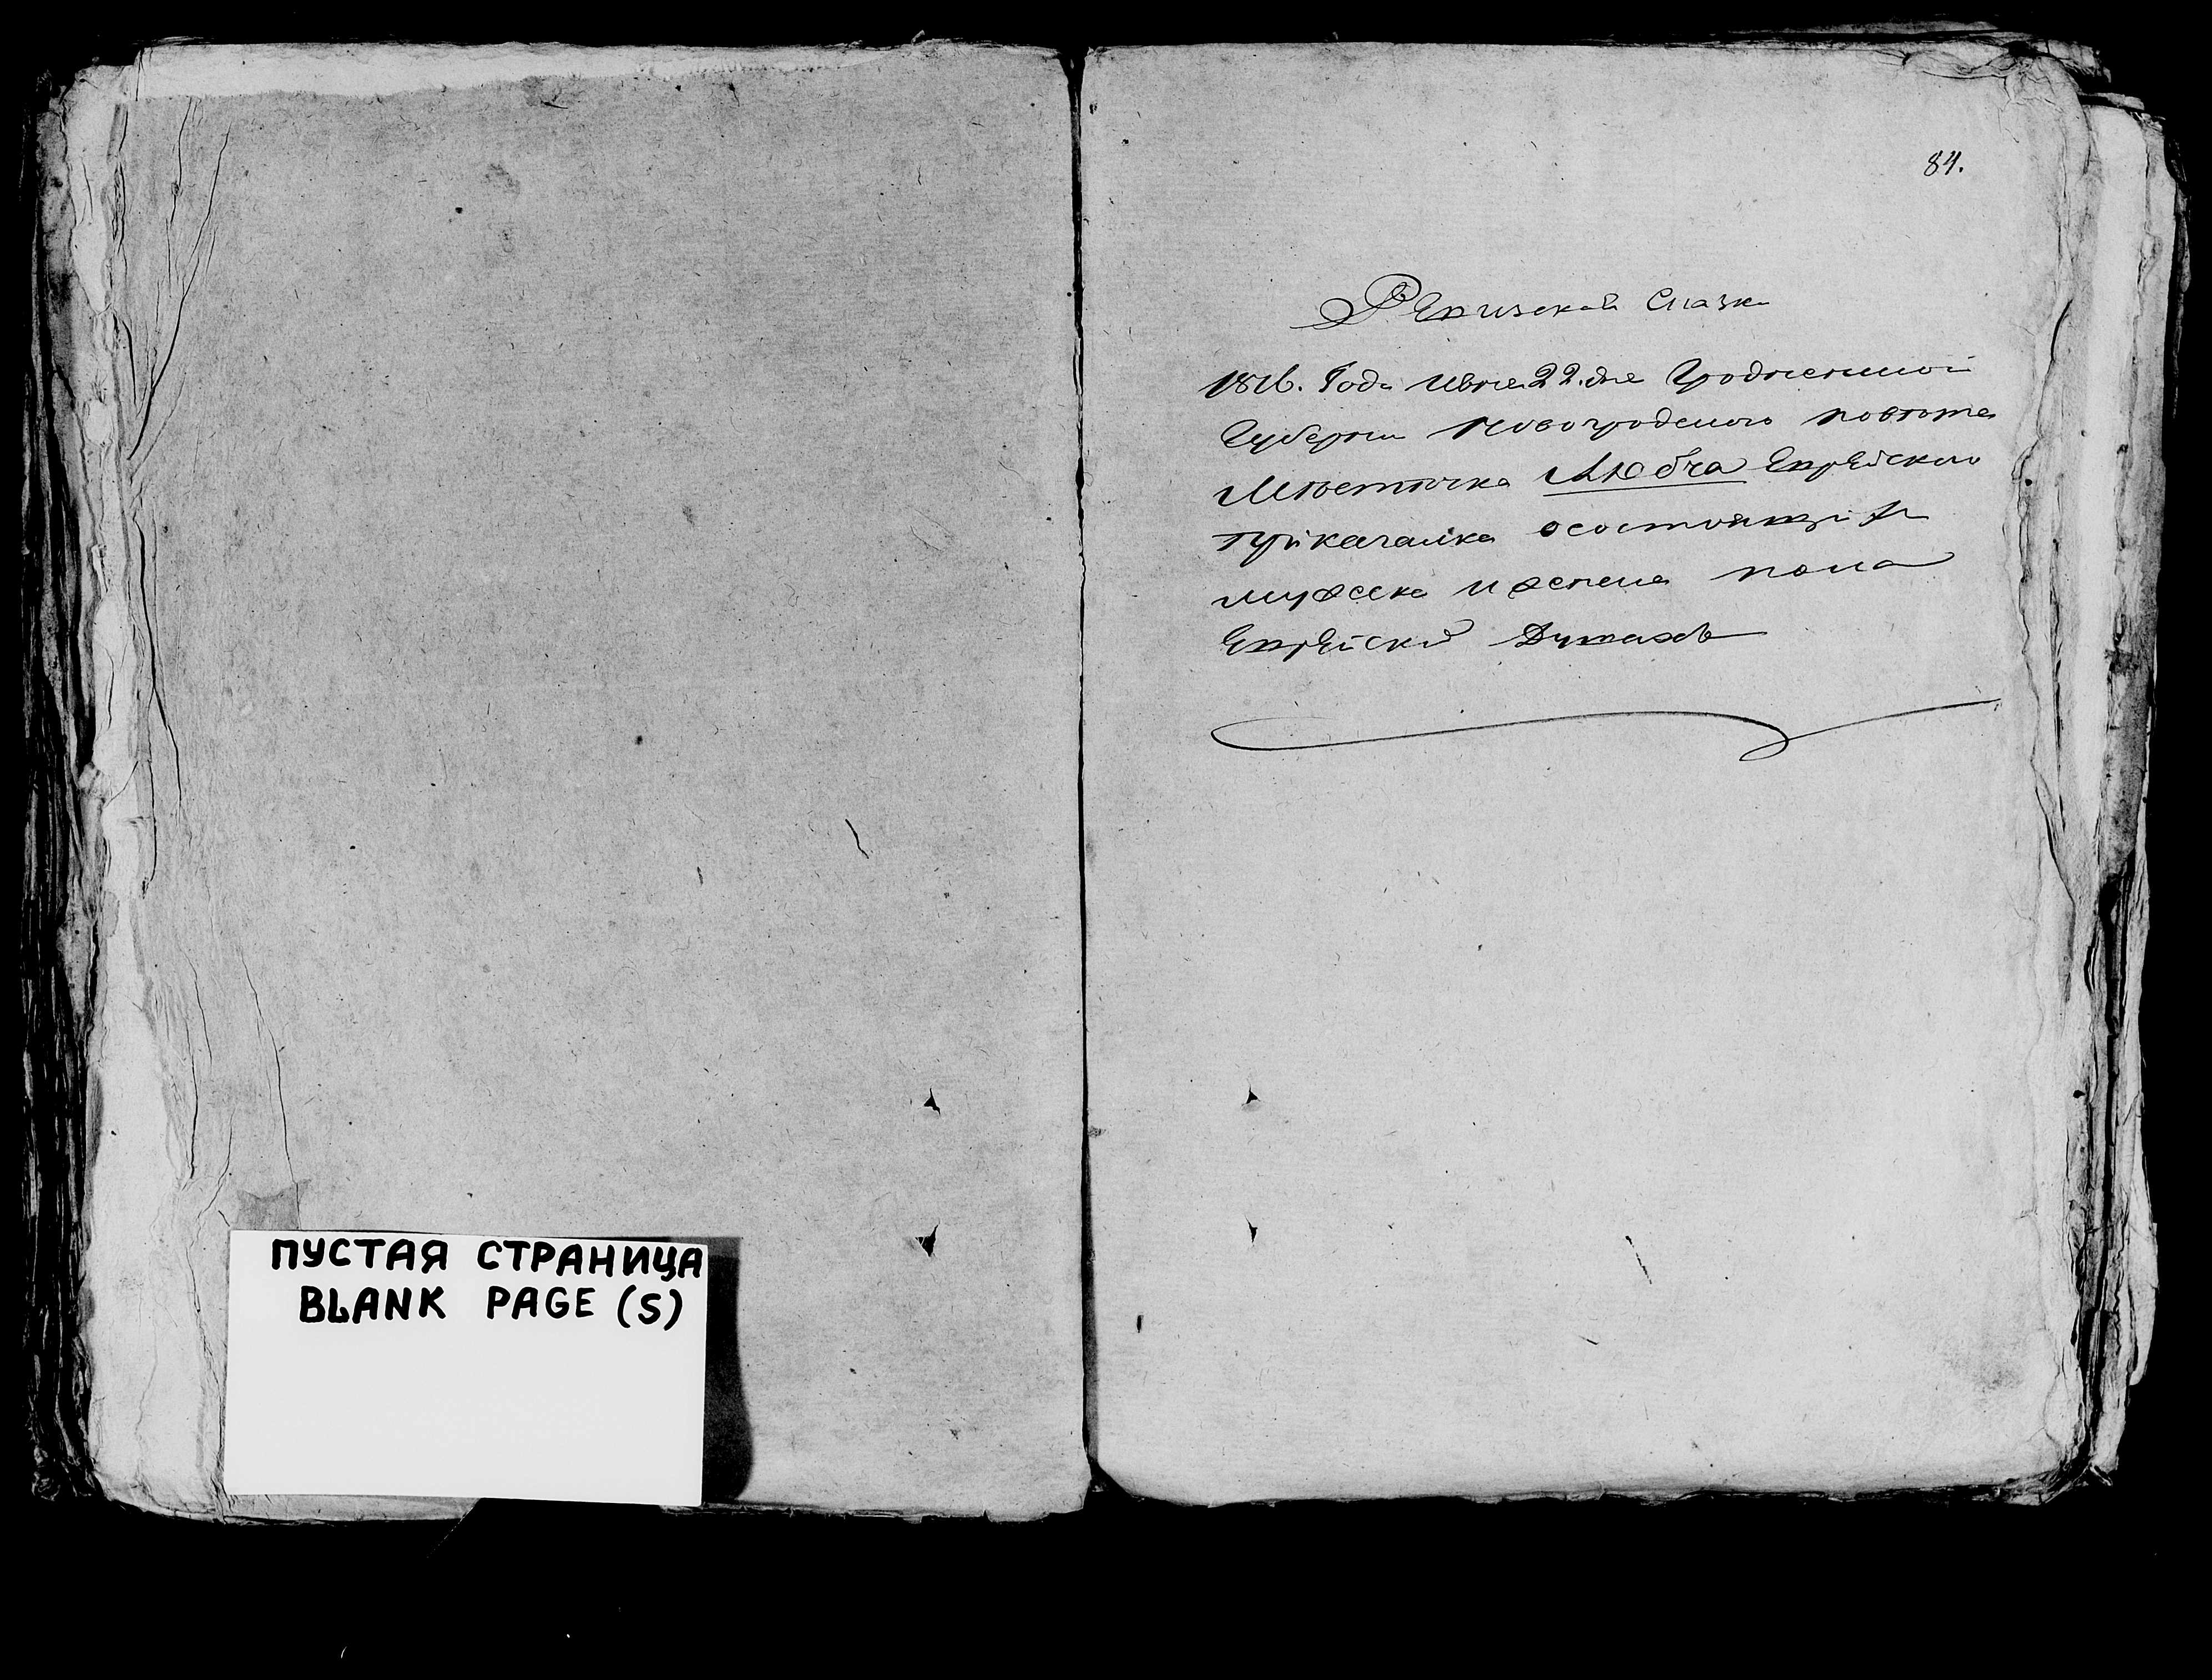 ПУСТАЯ СТРАНИЦА
BLANK PAGE (S)
84.
Ревизской Сказки
1816. Года июня 22. дня Гродненской
Губернии Новогродского повета
Местечка Любча Еврейского
прикагалка о состоящих
мужеска и женска пола
Еврейских Душахъ